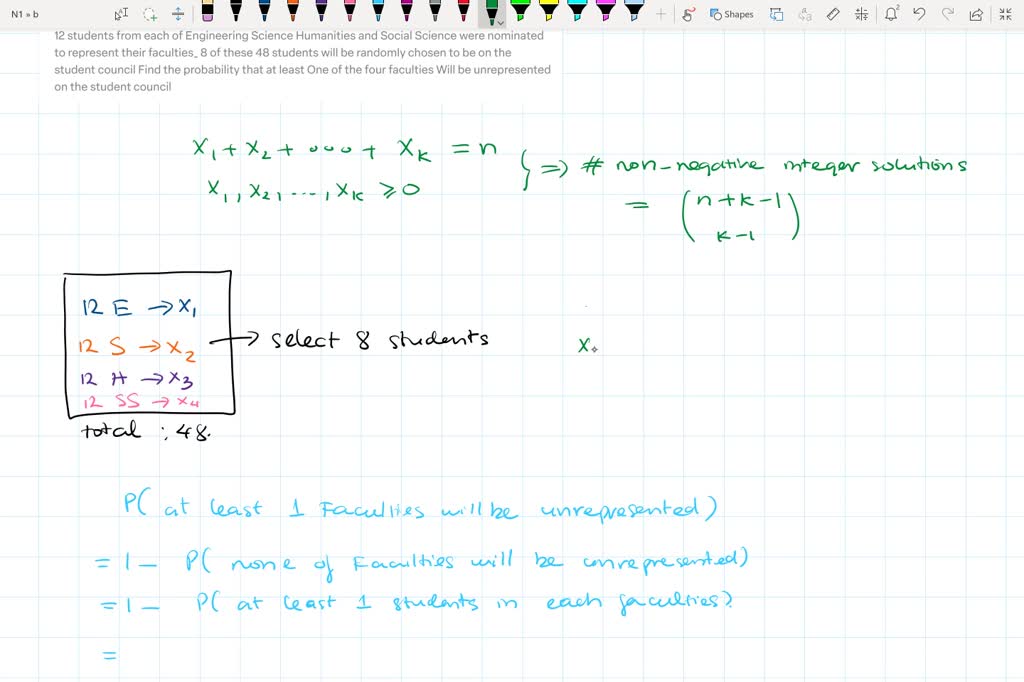 N1 » b
Shapes
12 students from each of Engineering Science Humanities and Social Science were nominated
to represent their faculties_ 8 of these 48 students will be randomly chosen to be on the
student council Find the probability that at least One of the four faculties Will be unrepresented
on the student council
x₁ + x₂ + ... + x_k = n
x₁, x₂, ..., x_k ≥ 0
} => # non-negative integer solutions
= (n+k-1
k-1)
12 E → x₁
12 S → x₂ → select 8 students
x
12 H → x₃
12 SS → x₄
total : 48.
P( at least 1 Faculties will be unrepresented)
= 1 - P( none of Faculties will be unrepresented)
= 1 - P( at least 1 students in each faculties)
=